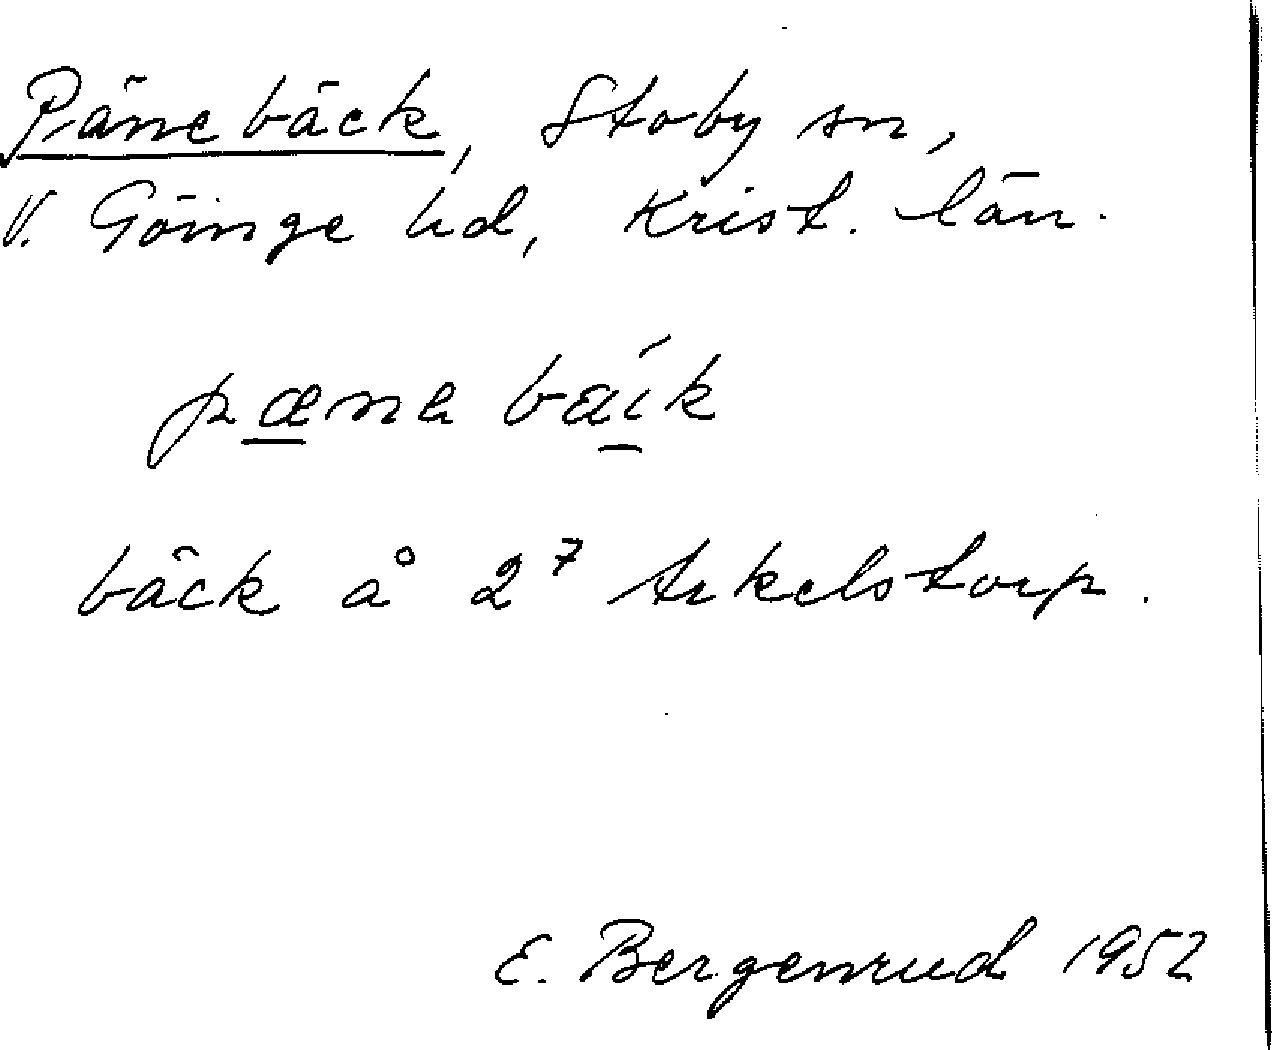 Pänebäck, Stoby sn,
V. Göinge hd, Krist. län.
pænɐ baík
bäck å 2⁷ Arkelstorp.
E. Bergenrud 1952